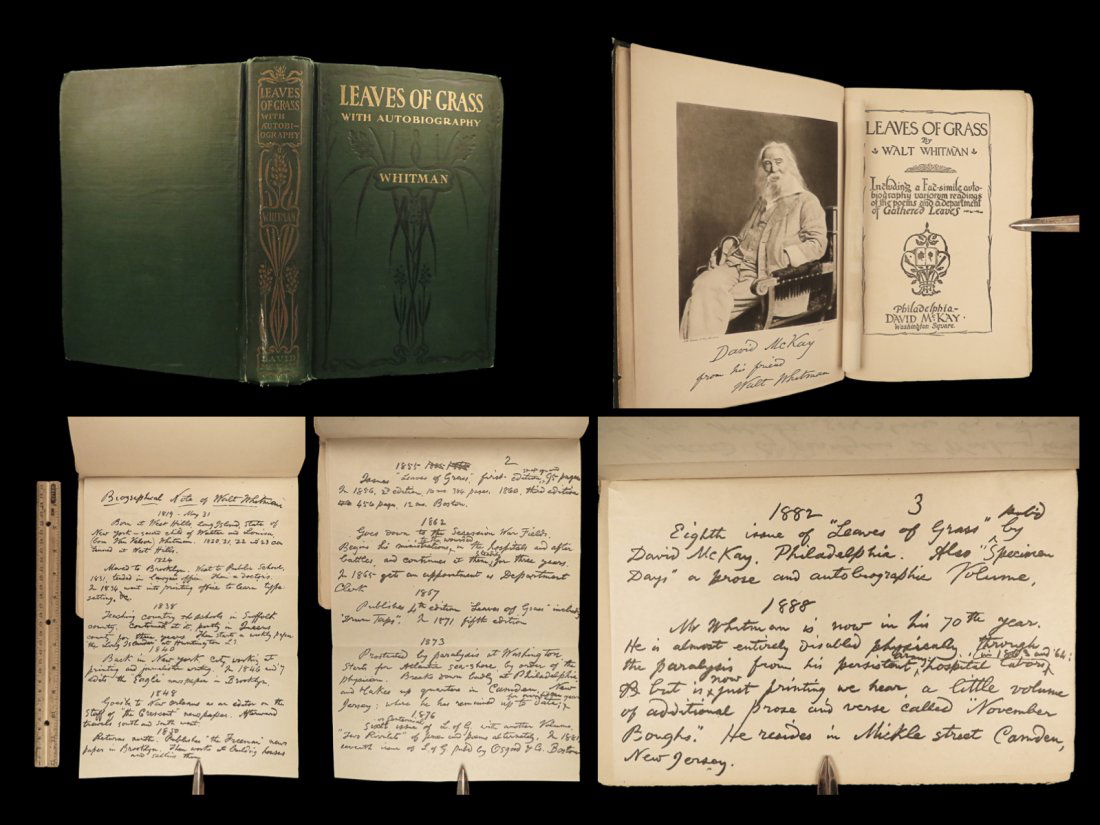 LEAVES
OF GRASS
WITH
AUTOBI-
OGRAPHY
WHITMAN
DAVID
LEAVES OF GRASS
WITH AUTOBIOGRAPHY
WHITMAN
David McKay
from his friend
Walt Whitman
LEAVES OF GRASS
By
WALT WHITMAN
Including a Fac-simile auto-
biography variorum readings
of the poems and a department
of Gathered Leaves
Philadelphia
DAVID McKAY
Washington Square
Biographical Note of Walt Whitman
1819 - May 31
Born at West Hills, Long Island, State of
New York - second child of Walter and Louisa
(born Van Velsor) Whitman. 1820, 21, 22 & 23 con
tinued at West Hills.
1824
Moved to Brooklyn. Went to Public Schools,
1831, tended in lawyer's office. Then a doctor's.
In 1834 went into printing office to learn type
setting, &c.
1838
Teaching country schools in Suffolk
county. Continued at it, partly in Queens
county for three years. Then starts a weekly paper
the Long Islander at Huntington L I
1840
Back in New York City, working at
printing and writing. In 1846 and 7
edits the Eagle newspaper in Brooklyn.
1848
Goes to New Orleans as an editor on the
staff of "the Crescent" newspaper. Afterward
travels south and south west.
1850
Returns north. Publishes "the Freeman" news
paper in Brooklyn. Then works at building houses
and selling them
1855 2
Issues "Leaves of Grass," first edition, small quarto 95 pages
In 1856, 2d edition, 16mo 384 pages. 1860, third edition
456 page 12mo. Boston.
1862
Goes down to the Secession War Field.
Begins his ministrations to the wounded in the hospitals and after
battles, and continues at them steadily for three years.
In 1865 gets an appointment as Department
Clerk
1867
Publishes 4th edition "Leaves of Grass" including
"Drum Taps". In 1871 fifth edition
1873
Prostrated by paralysis at Washington
Starts for Atlantic sea-shore by order of the
physician. Breaks down badly at Philadelphia
and takes up quarters in Camden, New
Jersey; where he has remained up to date,
1876
Sixth or Centennial issue of L of G with another Volume
"Two Rivulets" of prose and poems alternately. In 1881
seventh issue of L of G pub'd by Osgood & Co. Boston
1882 3
Eighth issue of "Leaves of Grass" pub'd by
David McKay, Philadelphia. Also "Specimen
Days" a prose and autobiographic Volume,
1888
Mr Whitman is now in his 70th year.
He is almost entirely disabled physically, through
the paralysis from his persistent hospital labors in 1863 and '64:
but is now just printing we hear, a little volume
of additional prose and verse called "November
Boughs." He resides in Mickle street Camden,
New Jersey.